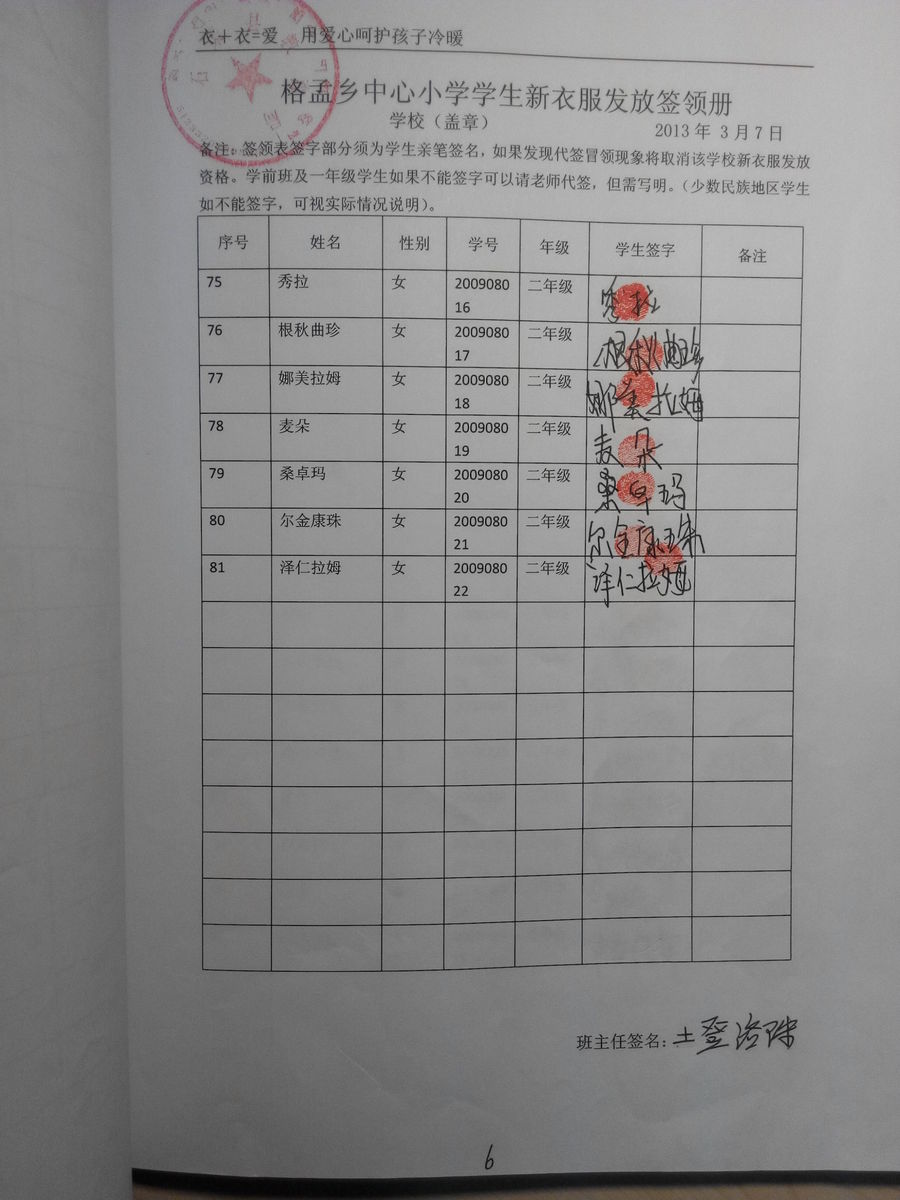 衣＋衣=爱　用爱心呵护孩子冷暖
格孟乡中心小学学生新衣服发放签领册
学校（盖章）
2013 年 3 月 7 日
备注：签领表签字部分须为学生亲笔签名，如果发现代签冒领现象将取消该学校新衣服发放
资格。学前班及一年级学生如果不能签字可以请老师代签，但需写明。（少数民族地区学生
如不能签字，可视实际情况说明）。
序号 姓名 性别 学号 年级 学生签字 备注
75 秀拉 女 2009080 二年级 秀拉
16
76 根秋曲珍 女 2009080 二年级 根秋曲珍
17
77 娜美拉姆 女 2009080 二年级 娜美拉姆
18
78 麦朵 女 2009080 二年级 麦朵
19
79 桑卓玛 女 2009080 二年级 桑卓玛
20
80 尔金康珠 女 2009080 二年级 尔金康珠
21
81 泽仁拉姆 女 2009080 二年级 泽仁拉姆
22
班主任签名：土登洛珠
6